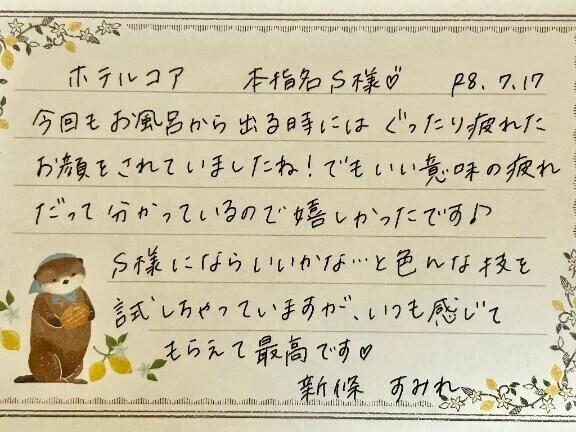 ホテルコア 本指名S様♡ R8.7.17
今回もお風呂から出る時にはぐったり疲れた
お顔をされていましたね！でもいい意味の疲れ
だって分かっているので嬉しかったです♪
S様にならいいかな…と色んな技を
試しちゃっていますが、いつも感じて
もらえて最高です♡
新條 すみれ